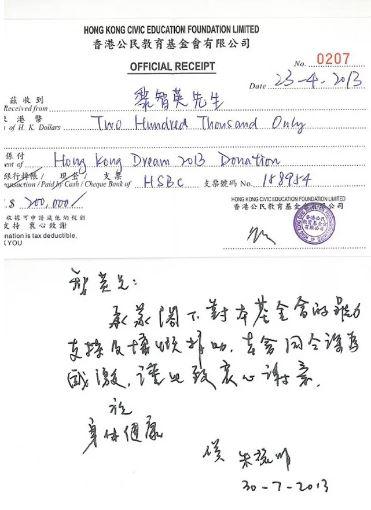 HONG KONG CIVIC EDUCATION FOUNDATION LIMITED
香港公民教育基金會有限公司
OFFICIAL RECEIPT
No. 0207
Date 23-4-2013
茲收到 黎智英先生
Received from
港幣 Two Hundred Thousand Only
of H. K. Dollars
係付 Hong Kong Dream 2013 Donation
ent of
銀行轉賬 / 現金 / 支票 HSBC 支票號碼 No. 188984
nsaction / Paid by Cash / Cheque Bank of
$ 200,000/
HONG KONG CIVIC EDUCATION FOUNDATION LIMITED
香港公民教育基金會有限公司
收據可申請減免稅
支持 衷心致謝
nation is tax deductible.
YOU
智英兄:
承蒙閣下對本基金會的
支持及慷慨捐助,
感激, 謹此致衷心謝意.
祝
身体健康
朱耀明
30-7-2013